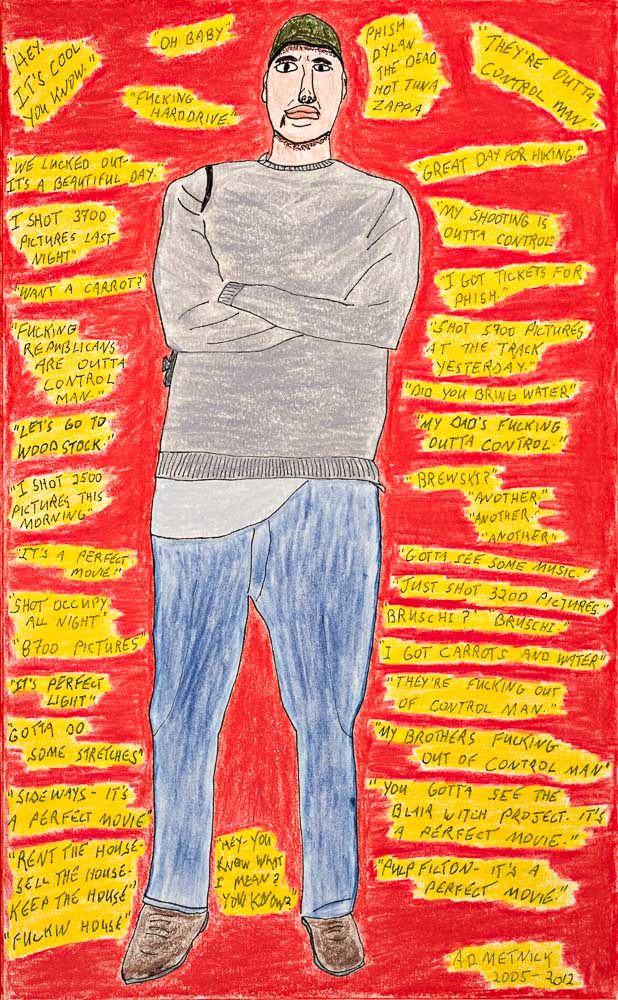 "HEY.
IT'S COOL
YOU KNOW."
"OH BABY."
"FUCKING
HARDDRIVE"
PHISH
DYLAN
THE DEAD
HOT TUNA
ZAPPA
"THEY'RE OUTTA
CONTROL MAN."
"WE LUCKED OUT-
IT'S A BEAUTIFUL DAY."
I SHOT 3700
PICTURES LAST
NIGHT"
"WANT A CARROT?"
"FUCKING
REPUBLICANS
ARE OUTTA
CONTROL
MAN."
"LET'S GO TO
WOODSTOCK."
"I SHOT 2500
PICTURES THIS
MORNING"
"IT'S A PERFECT
MOVIE."
"SHOT OCCUPY
ALL NIGHT"
"8700 PICTURES"
"IT'S PERFECT
LIGHT"
"GOTTA DO
SOME STRETCHES"
"SIDEWAYS - IT'S
A PERFECT MOVIE"
"RENT THE HOUSE-
SELL THE HOUSE-
KEEP THE HOUSE"
"FUCKIN HOUSE"
"HEY- YOU
KNOW WHAT
I MEAN?
YOU KNOW?"
"GREAT DAY FOR HIKING."
"MY SHOOTING IS
OUTTA CONTROL"
"I GOT TICKETS FOR
PHISH."
"SHOT 5900 PICTURES
AT THE TRACK
YESTERDAY."
"DID YOU BRING WATER"
"MY DAD'S FUCKING
OUTTA CONTROL."
"BREWSKI?"
"ANOTHER."
"ANOTHER."
"ANOTHER"
"GOTTA SEE SOME MUSIC."
"JUST SHOT 3200 PICTURES"
BRUSCHI?" "BRUSCHI."
I GOT CARROTS AND WATER"
"THEY'RE FUCKING OUT
OF CONTROL MAN."
"MY BROTHERS FUCKING
OUT OF CONTROL MAN"
"YOU GOTTA SEE THE
BLAIR WITCH PROJECT. IT'S
A PERFECT MOVIE."
"PULP FILTON- IT'S A
PERFECT MOVIE."
A.D. METNICK
2005-2012